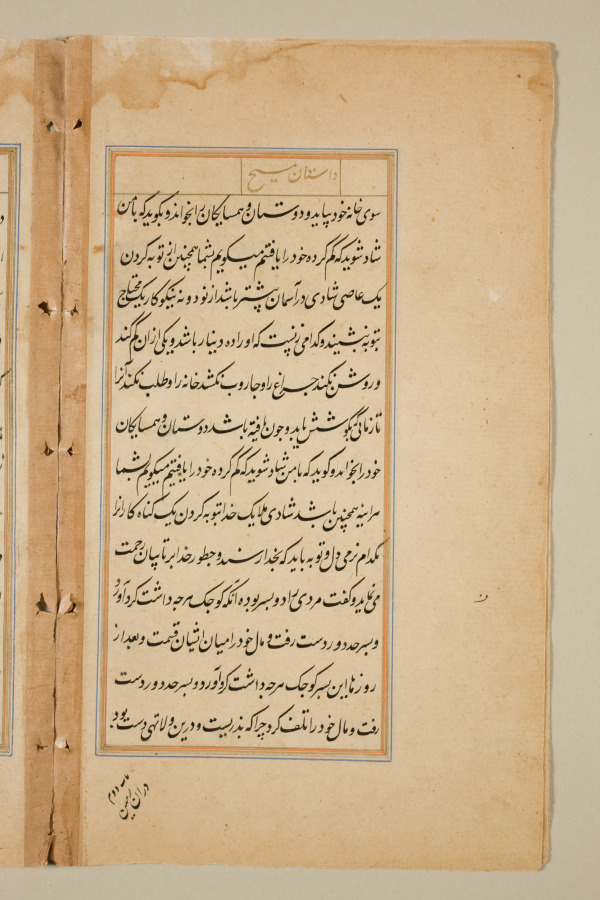 داستان مسیح
سوی خانه خود بیاید و دوستان و همسایکان را بخواند و بکوید که با من
شاد شوید که کم کرده خود را یافتم میکویم بشما همچنین از توبه کردن
یک عاصی شادی در آسمان بیشتر باشد از نود و نه نیکوکار که محتاج
بتوبه نیستند و کدام زنیست که او را ده دینار باشد و یکی از آن کم کند
و روشن نکند چراغ را و جاروب نکشد خانه را و طلب نکند آنرا
تا زمانی که بدستش یابد و چون یافته باشد دوستان و همسایکان
خود را بخواند و کوید که با من شاد شوید که کم کرده خود را یافتم میکویم بشما
هرآینه همچنین باشد شادی ملایک خدا بتوبه کردن یک کناه کار از
بکدام نرمی دل و توبه باید که بخدا رسند و چطور خدا بر تایبان رحمت
می نماید و کفت مردی را دو پسر بوده آنکه کوچک هرچه داشت کرد آورد
و بسرحد دور دست رفت و مال خود را میان ایشان قسمت و بعد از
روزها این پسر کوچک هرچه داشت کرد آورد و بسرحد دور دست
رفت و مال خود را تلف کرد چرا که بد زیست و درین ولا تهی دست بود